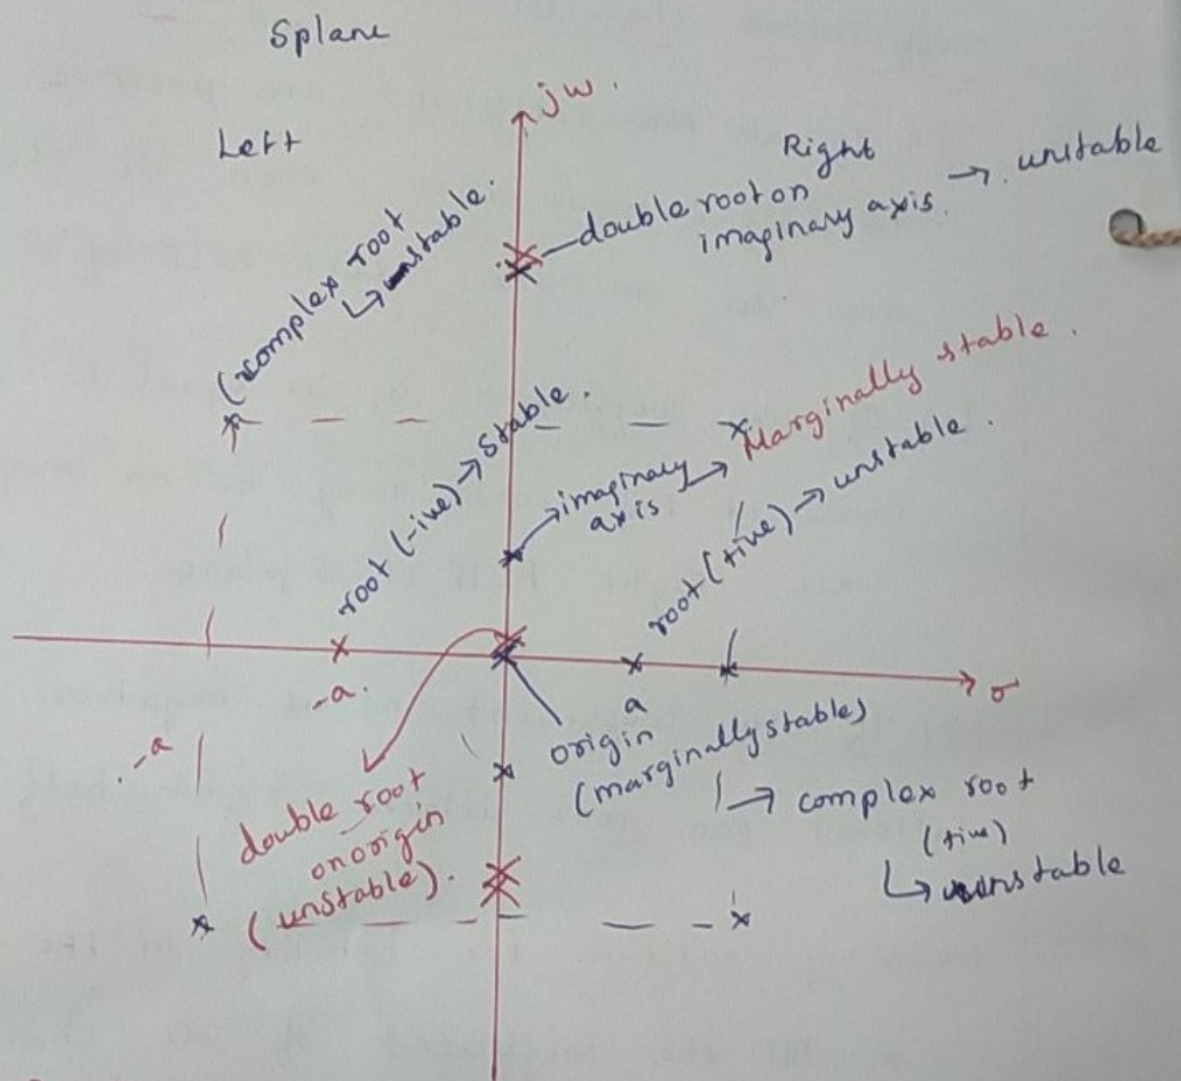 Splane
jw.
Left
Right
double root on
imaginary axis. → unstable
complex root
↳ unstable.
root (-ive) → stable.
imaginary
axis → Marginally stable.
root (+ive) → unstable.
σ
-a.
a
-a
origin
(marginally stable)
double root
on origin
(unstable).
↳ complex root
(+ive)
↳ unstable